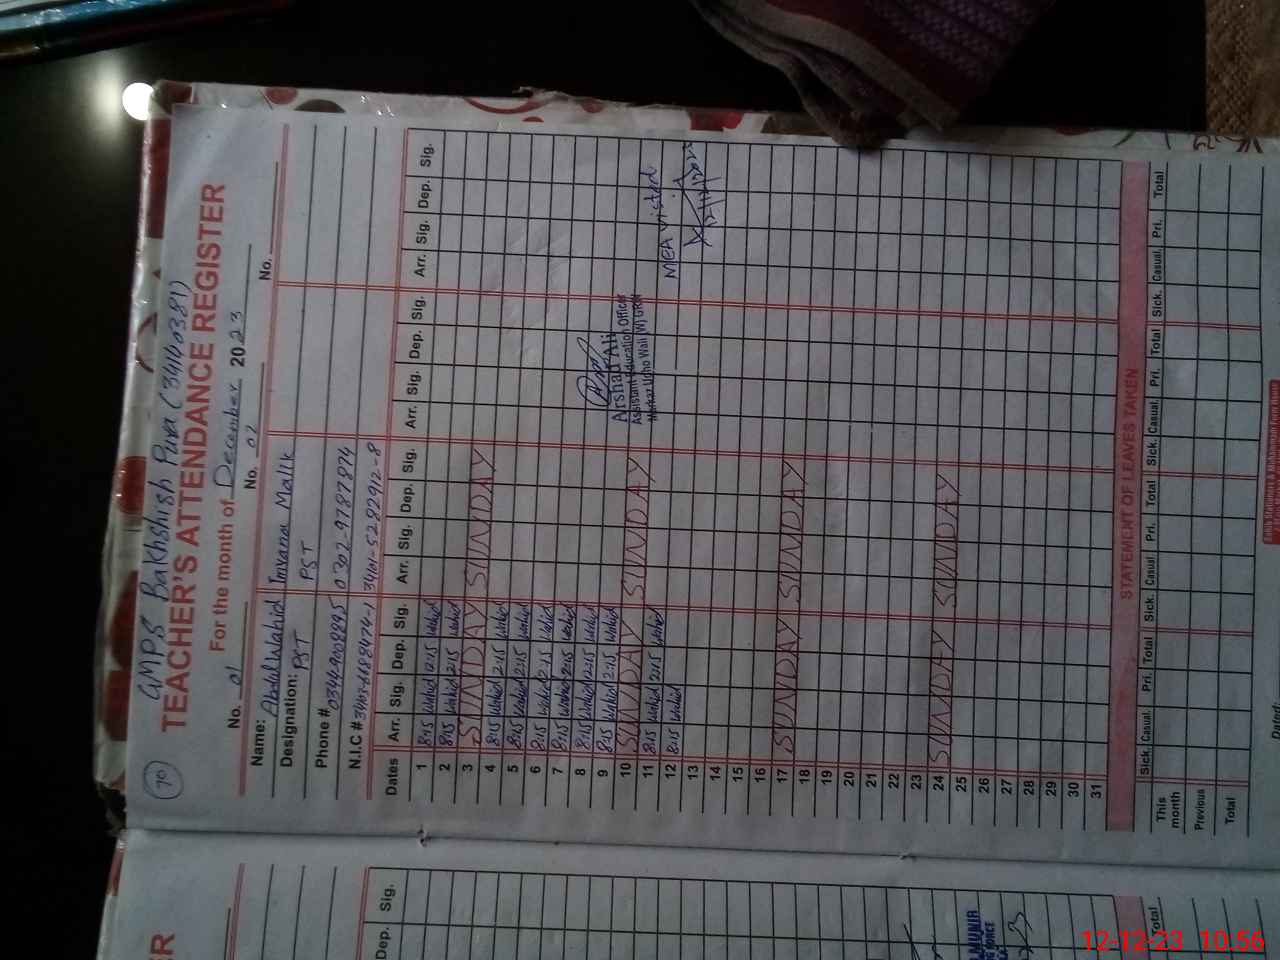 70
GMPS Bakhshish Pura (34140381)
TEACHER'S ATTENDANCE REGISTER
For the month of December 2023
No. 01 No. 02 No.
Name: Abdul Wahid Imrana Malik
Designation: PST PST
Phone # 03449008895 0302-9787874
N.I.C # 34101-5282912-8
Dates Arr. Sig. Dep. Sig. Arr. Sig. Dep. Sig. Arr. Sig. Dep. Sig. Arr. Sig. Dep. Sig.
1 8:15 Wahid 12:15 Wahid
2 8:15 Wahid 2:15 Wahid
3 SUNDAY SUNDAY
4 8:15 Wahid 2:15 Wahid
5 8:15 Wahid 2:15 Wahid
6 8:15 Wahid 2:15 Wahid
7 8:15 Wahid 2:15 Wahid
8 8:15 Wahid 2:15 Wahid
9 8:15 Wahid 2:15 Wahid
10 SUNDAY SUNDAY
11 8:15 Wahid 2:15 Wahid
12 8:15 Wahid
13
14
15
16
17 SUNDAY SUNDAY
18
19
20
21
22
23
24 SUNDAY SUNDAY
25
26
27
28
29
30
31
Arshad Ali
Assistant Education Officer
Markaz Udho Wali (W) GRW
MEA visted
12/12/2023
STATEMENT OF LEAVES TAKEN
Sick. Casual. Pri. Total Sick. Casual Pri. Total Sick. Casual. Pri. Total Sick. Casual. Pri. Total
This month
Previous
Total
R
Dep. Sig.
Total
MUNIR
12-12-23 10:56